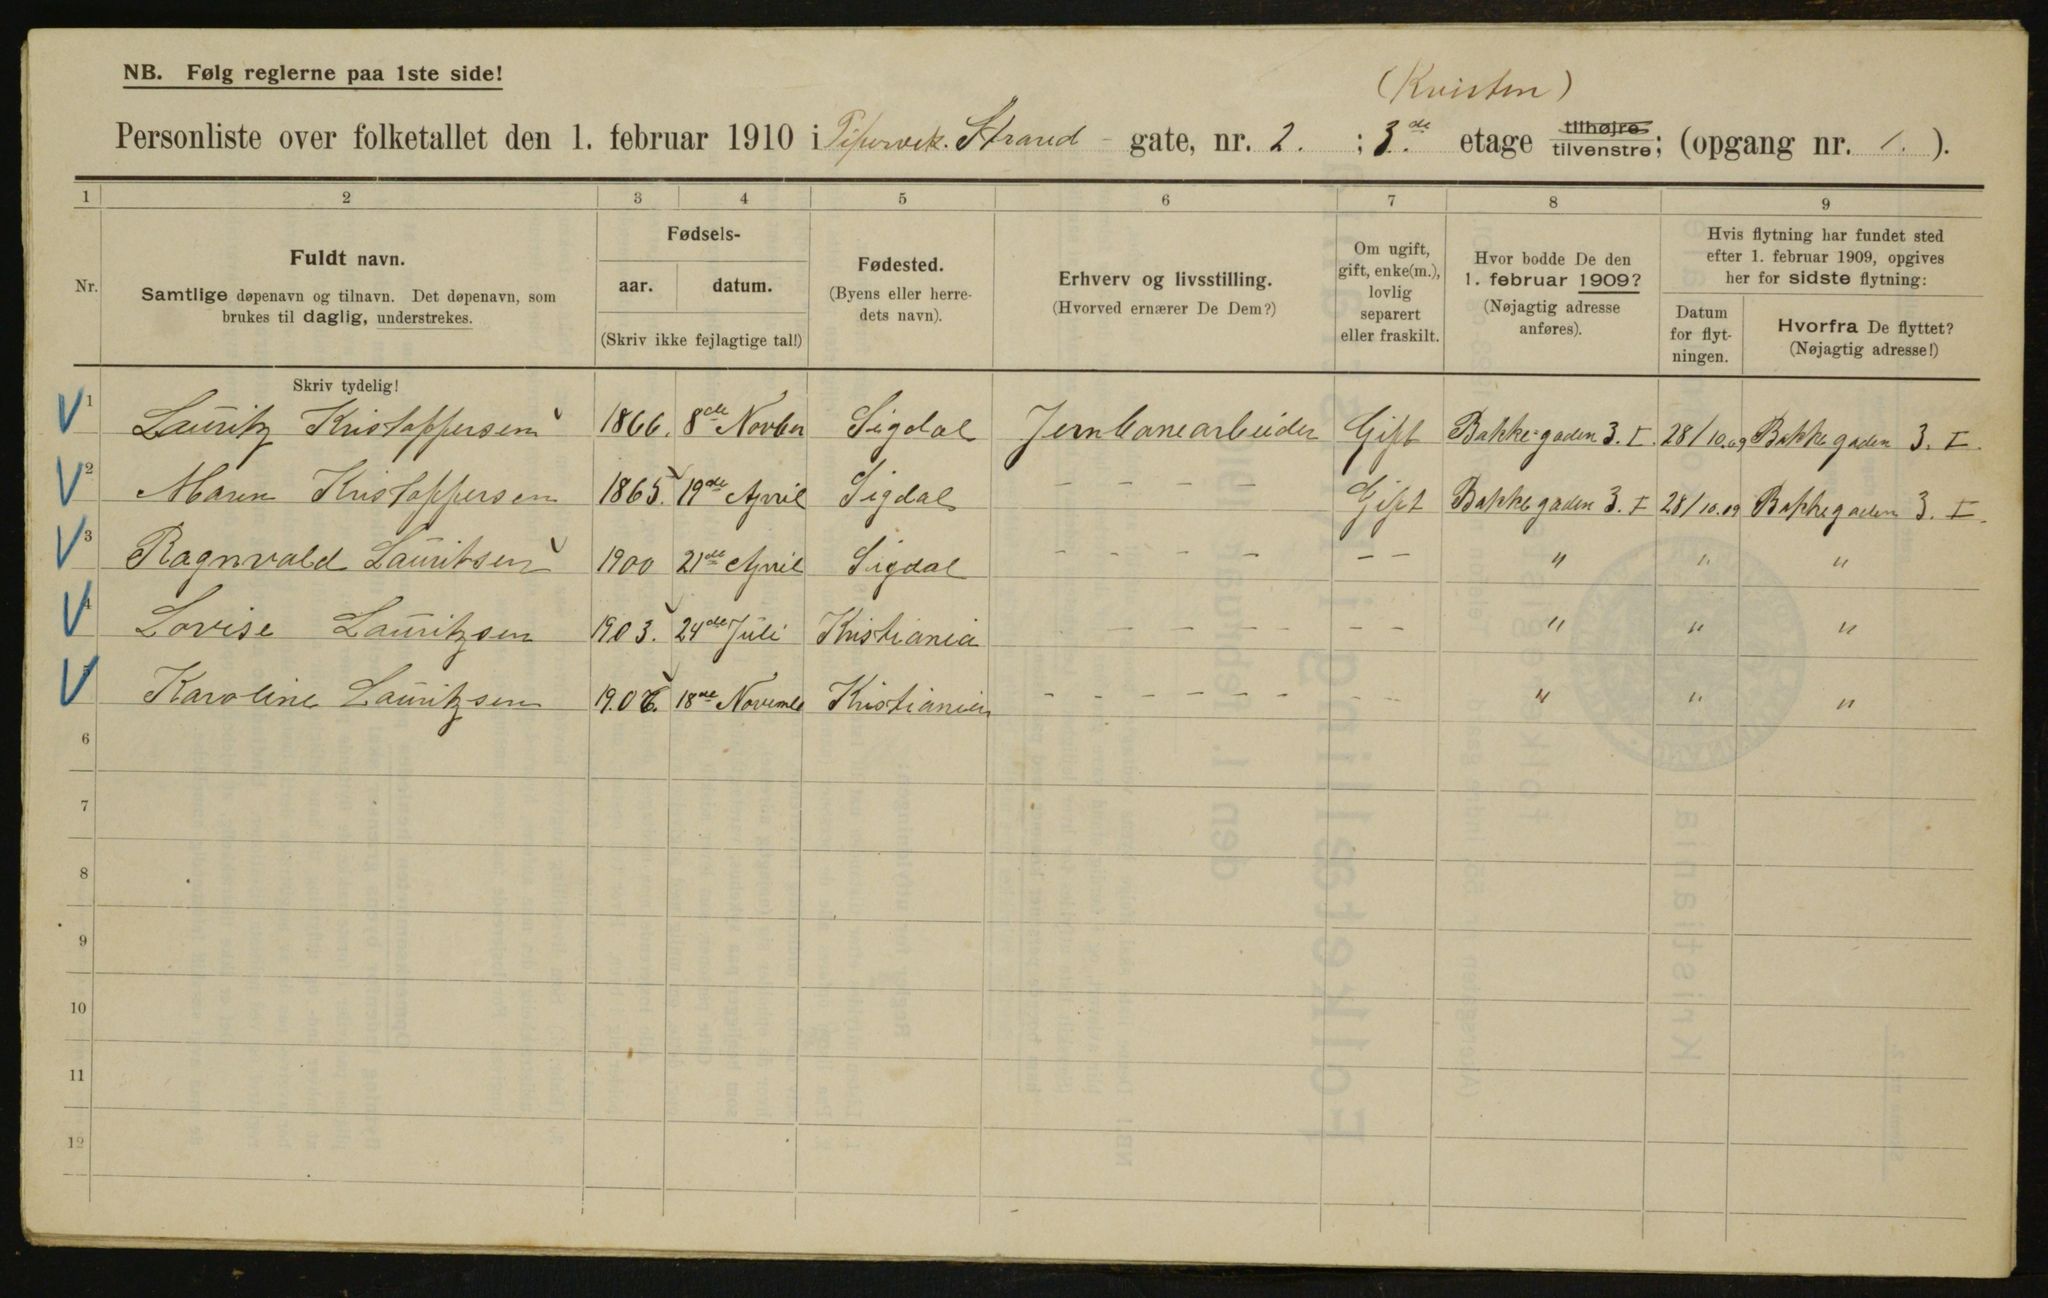 NB. Følg reglerne paa 1ste side!
(Kvisten)
Personliste over folketallet den 1. februar 1910 i Pipervik. Strand - gate, nr. 2. ; 3.de etage tilhøjre tilvenstre; (opgang nr. 1. ).
1 2 3 4 5 6 7 8 9
Nr.
Fuldt navn.
Samtlige døpenavn og tilnavn. Det døpenavn, som
brukes til daglig, understrekes.
Fødsels-
aar. datum.
(Skriv ikke fejlagtige tal!)
Fødested.
(Byens eller herre-
dets navn).
Erhverv og livsstilling.
(Hvorved ernærer De Dem?)
Om ugift,
gift, enke(m.),
lovlig
separert
eller fraskilt.
Hvor bodde De den
1. februar 1909?
(Nøjagtig adresse
anføres).
Hvis flytning har fundet sted
efter 1. februar 1909, opgives
her for sidste flytning:
Datum
for flyt-
ningen.
Hvorfra De flyttet?
(Nøjagtig adresse!)
Skriv tydelig!
1 Lauritz Kristoffersen 1866. 8de Novber Sigdal Jernbanearbeider Gift Bakke-gaden 3. I. 28/10.09 Bakkegaden 3. I.
2 Maren Kristoffersen 1865. 19de April Sigdal - - - - Gift Bakkegaden 3. I 28/10.09 Bakkegaden 3. I.
3 Ragnvald Lauritsen 1900 21de April Sigdal - - - - - - " " "
4 Lovise Lauritzsen 1903. 24de Juli Kristiania - - - - - - - - " " "
5 Karoline Lauritzsen 18de Novembe Kristiania - - - - - - - - " " "
6
7
8
9
10
11
12